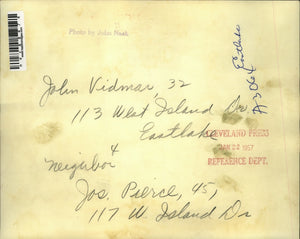 Photo by John Nash
Eastlake
John Vidmar, 32
113 West Island Dr
Eastlake
CLEVELAND PRESS
JAN 22 1957
REFERENCE DEPT.
Neighbor
Jos. Pierce, 45,
117 W. Island Dr